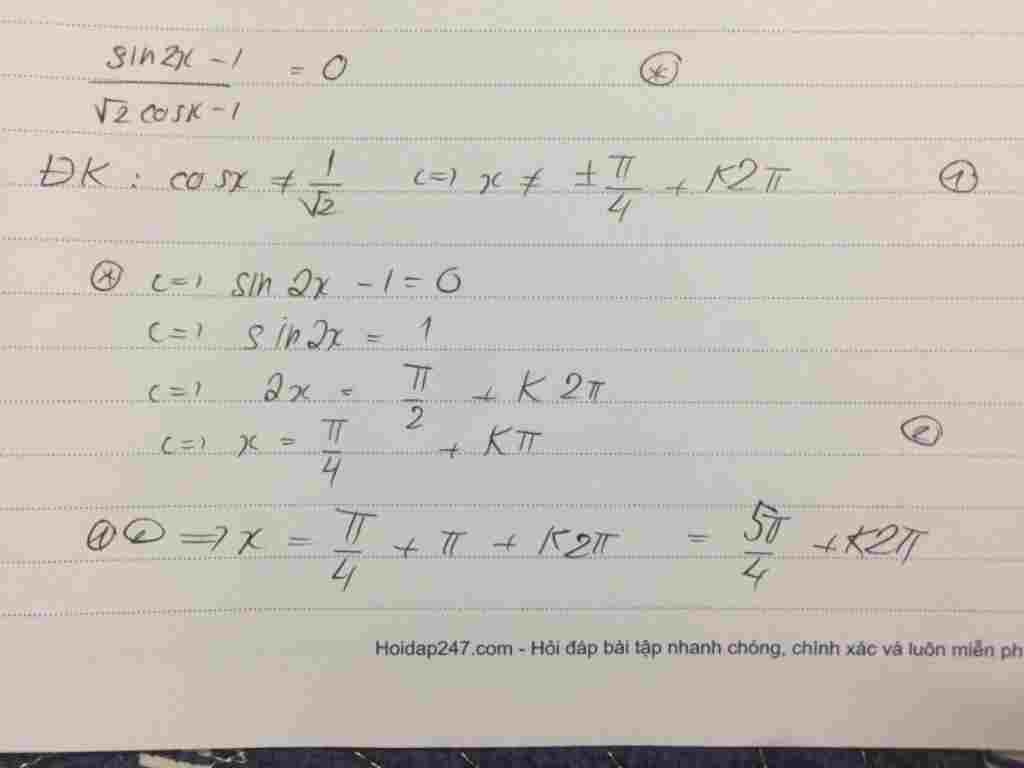 sin2x - 1
/ √2 cosx - 1 = 0 (*)
ĐK : cosx ≠ 1/√2 <=> x ≠ ± π/4 + K2π (1)
(*) <=> sin 2x - 1 = 0
<=> sin2x = 1
<=> 2x = π/2 + K2π
<=> x = π/4 + Kπ (2)
(1)(2) => x = π/4 + π + K2π = 5π/4 + K2π
Hoidap247.com - Hỏi đáp bài tập nhanh chóng, chính xác và luôn miễn ph